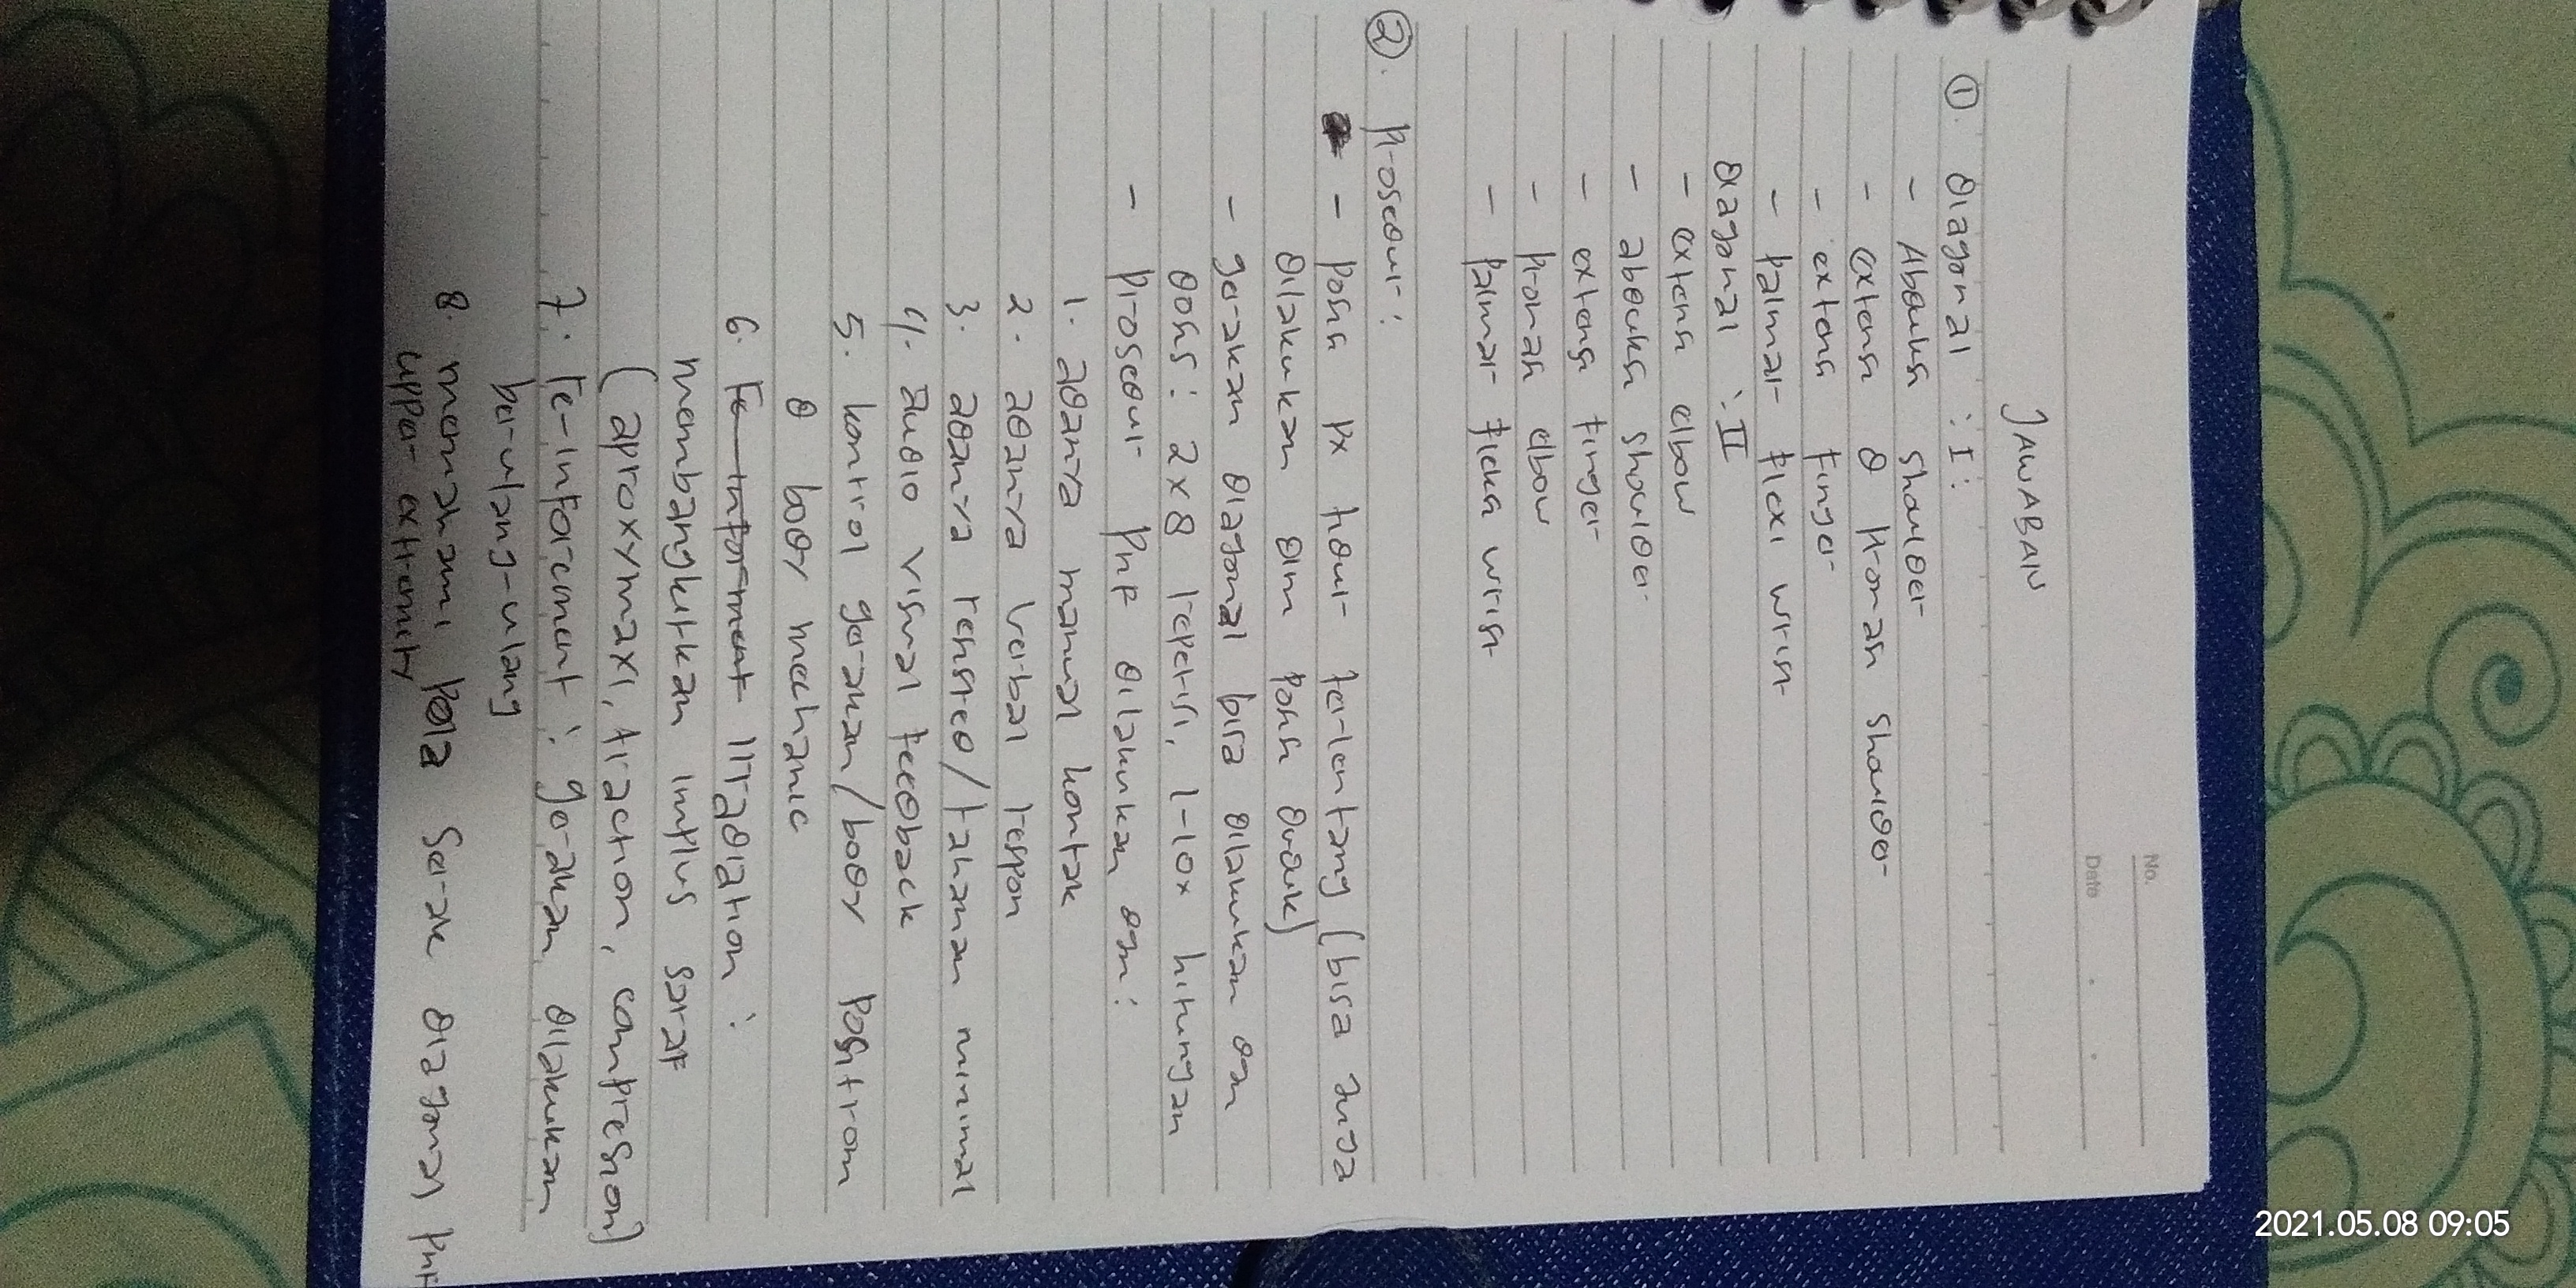 No.
Date
JAWABAN
① Diagonal : I :
- Abduksi shoulder
- extensi & pronasi shoulder
- extensi finger
- palmar flexi wrist
Diagonal : II
- extensi elbow
- abduksi shoulder
- extensi finger
- pronasi elbow
- palmar fleksi wrist
②. prosedur :
- posisi px tidur terlentang (bisa juga
dilakukan dlm posisi duduk)
- gerakan diagonal bisa dilakukan dgn
dosis : 2x8 repetisi, 1-10x hitungan
- prosedur PNF dilakukan dgn :
1. adanya manual kontak
2. adanya verbal respon
3. adanya resisted/tahanan minimal
4. Audio visual feedback
5. kontrol gerakan/body position
& body mechanic
6. Re-Informent Irradiation :
membangkitkan implus saraf
(aproxymaxi, traction, compression)
7. re-inforcment : gerakan dilakukan
berulang-ulang
8. memahami pola gerak diagonal PNF
upper extremity
2021.05.08 09:05